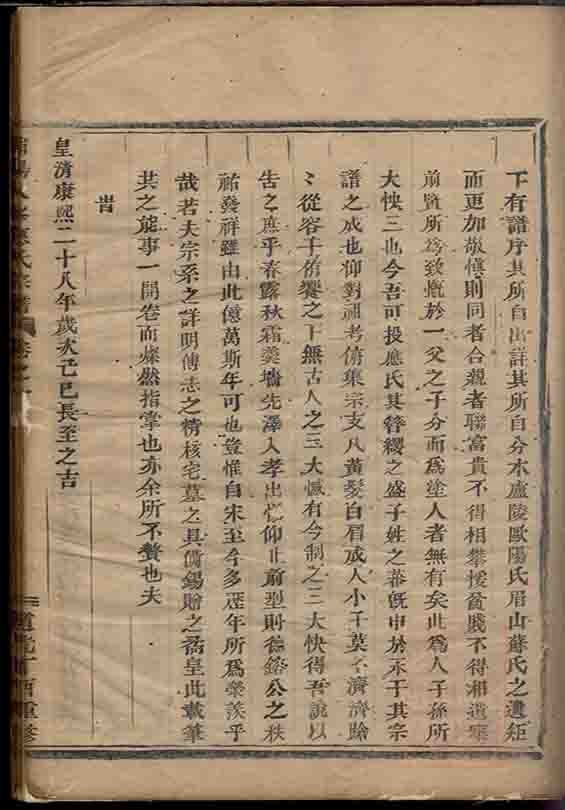 下有譜序其所自出註其所自分本廬陵歐陽氏眉山蘇氏之遺矩
而更加敬慎則同者合親者聯富貴不得相攀援貧賤不得相遺棄
前賢所為致慨於一父之子分而為塗人者無有矣此為人子孫所
大快三也今吾可投應氏其簪纓之盛子姓之蕃旣申於永于其宗
譜之成也仰對祖考俯集宗支凡黃髮白眉成人小子莫不濟濟蹌
〻從容于俯饗之下無古人之三大憾有今制之三大快得吾說以
告之庶乎春露秋霜羹墻先澤入孝出悌仰止前型則德 公之秩
祜發祥雖由此億萬斯年可也豈惟自宋至今多歷年所為榮羨乎
哉若夫宗系之詳明傳志之精核宅墓之具備錫贈之 皇此載筆
共之能事一開卷而燦然指掌也亦余所不贅也夫
旹
皇清康熙二十八年歲次己巳長至之吉
氏宗譜 卷之
道光丁酉重修